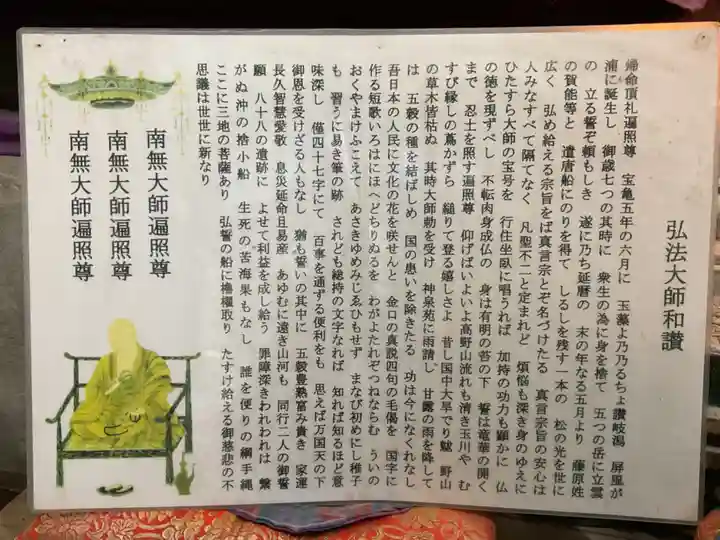 弘法大師和讃
帰命頂礼遍照尊 宝亀五年の六月に 玉藻よ乃乃るちょ讃岐潟 屏風が
浦に誕生し 御歳七つの其時に 衆生の為に身を捨て 五つの岳に立雲
の 立る誓ぞ頼もしき 遂に乃ち延暦の 末の年なる五月より 藤原姓
の賀能等と 遣唐船にのりを得て しるしを残す一本の 松の光を世に
広く 弘め給える宗旨をば真言宗とぞ名づけたる 真言宗旨の安心は
人みなすべて隔てなく 凡聖不二と定まれど 煩悩も深き身のゆえに
ひたすら大師の宝号を 行住坐臥に唱うれば 加持の功力も顕かに 仏
の徳を現ずべし 不転肉身成仏の 身は有明の苔の下 誓は竜華の開く
まで 忍土を照す遍照尊 仰げばいよいよ高野山流れも清き玉川や む
すび縁しの蔦かずら 縋りて登る嬉しさよ 昔し国中大旱でり 野山
の草木皆枯ぬ 其時大師勅を受け 神泉苑に雨請し 甘露の雨を降して
は 五穀の種を結ばしめ 国の患いを除きたる 功は今になくれなし
吾日本の人民に文化の花を咲せんと 金口の真説四句の毛偈を 国字に
作る短歌いろはにほへどちりぬるを わがよたれぞつねならむ ういの
おくやまけふこえて あさきゆめみじゑひもせず まなび初めにし稚子
も 習うに易き筆の跡 されども総持の文字なれば 知れば知るほど意
味深し 僅四十七字にて 百事を通ずる便利をも 思えば万国天の下
御恩を受けざる人もなし 猶も誓いの其中に 五穀豊熟富み貴き 家運
長久智慧愛敬 息災延命且易産 あゆむに遠き山河も 同行二人の御誓
願 八十八の遺跡に よせて利益を成し給う 罪障深きわれわれは 繋
がぬ沖の捨小船 生死の苦海果もなし 誰を便りの綱手縄
ここに三地の菩薩あり 弘誓の船に櫓櫂取り たすけ給える御慈悲の不
思議は世世に新なり
南無大師遍照尊
南無大師遍照尊
南無大師遍照尊